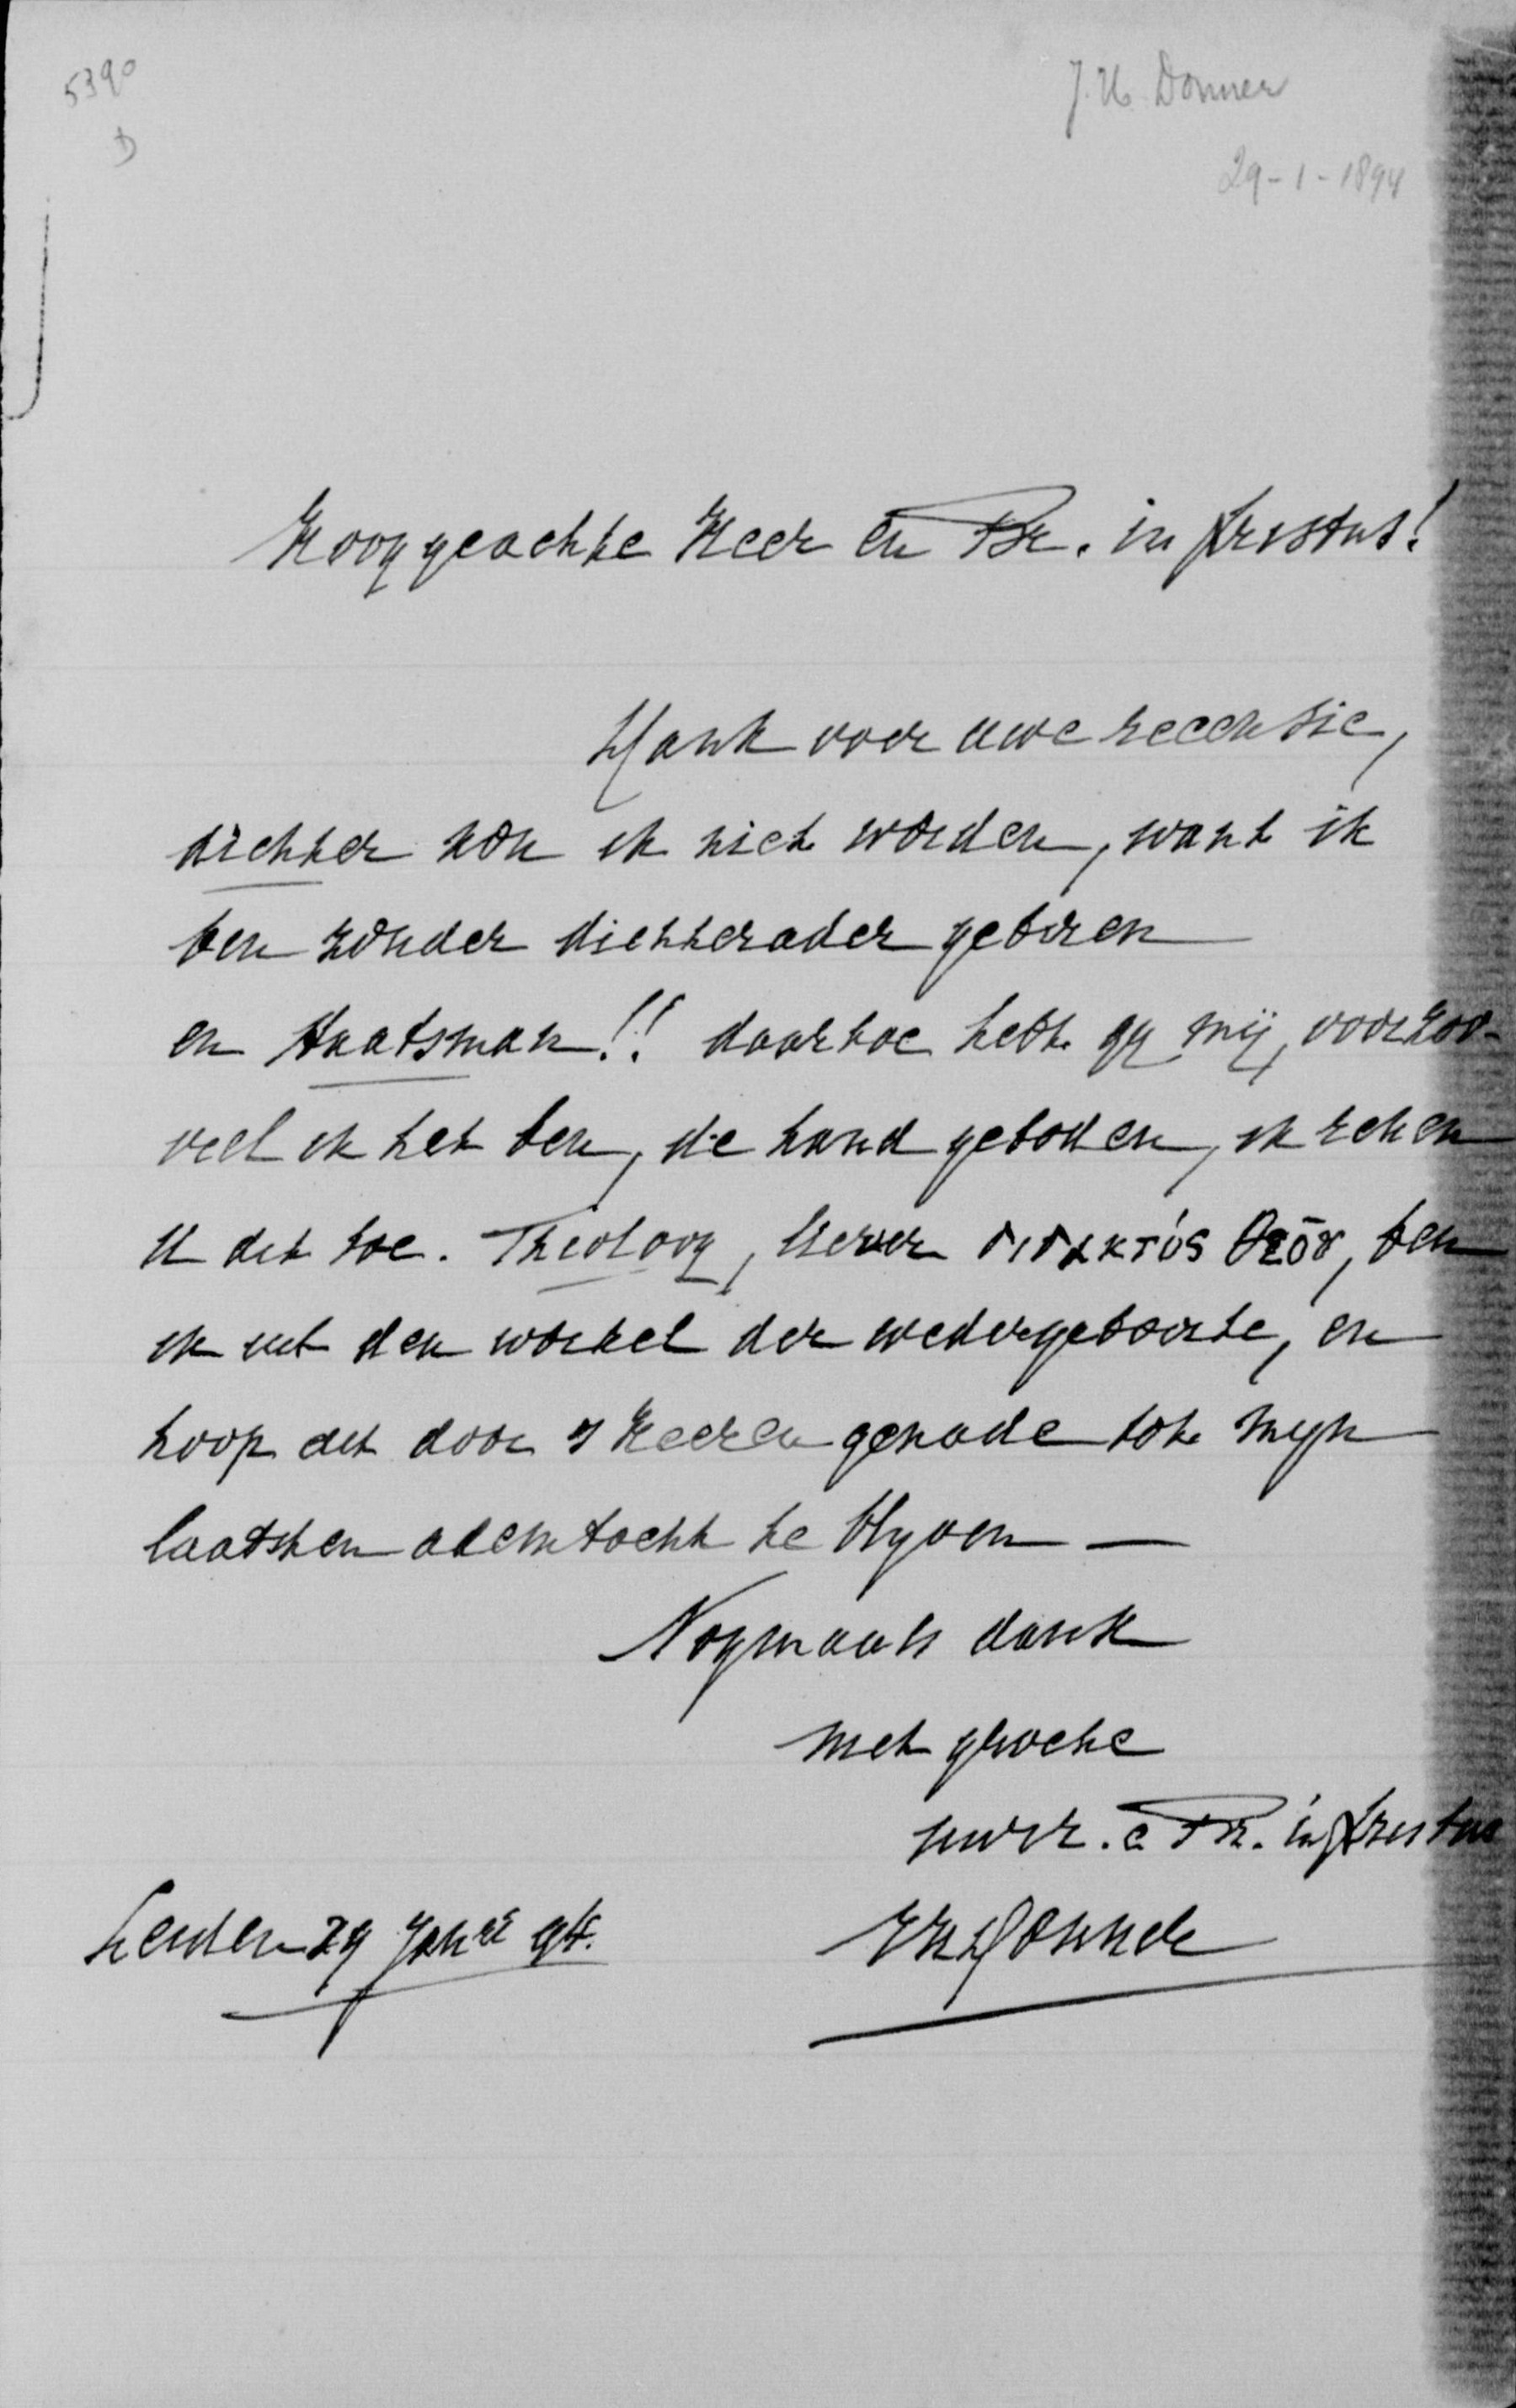 5390
D
J. H. Donner
29-1-1894
Hooggeachte Heer en Br. in Xristus!
Dank voor uwe recensie,
dichter kon ik niet worden, want ik
ben zonder dichterader geboren
en staatsman!! daartoe hebt gij mij, voorzoo-
veel ik het ben, de hand geboden, ik reken
U dit toe. Theoloog, liever διδακτός θεοῦ, ben
ik uit den wortel der wedergeboorte, en
hoop dit door 's Heeren genade tot mijn
laatsten ademtocht te blijven —
Nogmaals dank
met groete
uw dr. e Br. in Xristus
JHDonner
Leiden 29 Janri 94.